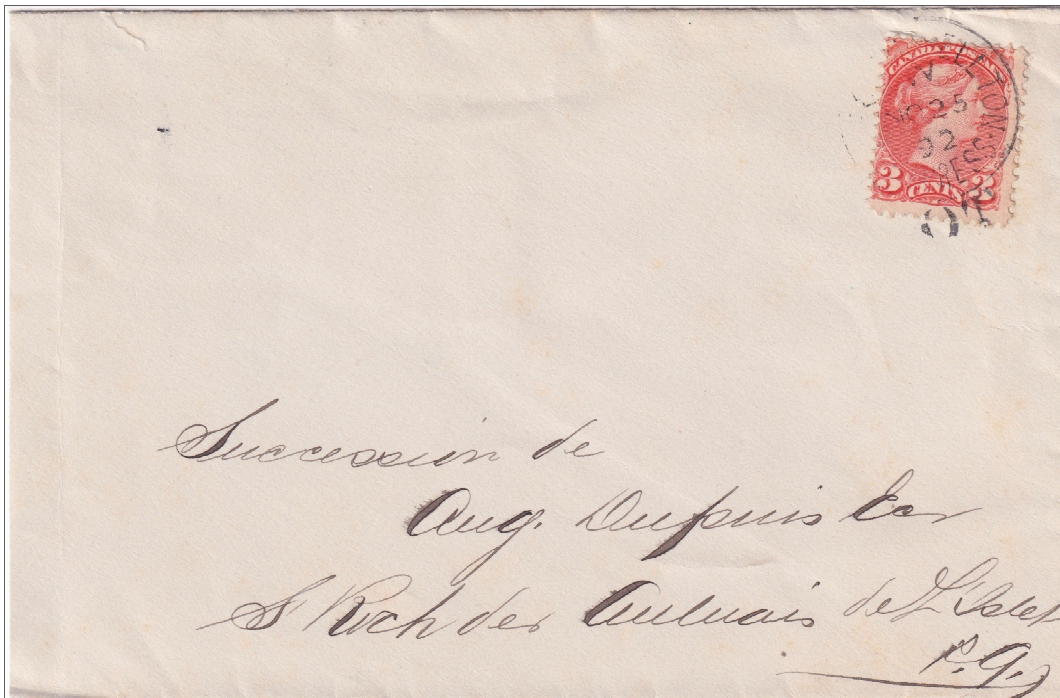 CANADA POSTAGE
25
92
3 CENTS 3
Succession de
Aug. Dupuis Ecr
St Roch des Aulnais de L'Islet
P.Q.